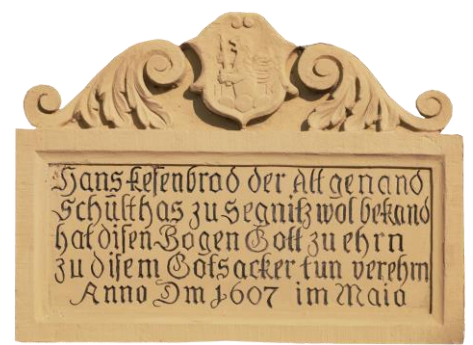 Hans kesenbrod der Alt genand
Schulthas zu Segnitz wol bekand
hat disen Bogen Gott zu ehrn
zu disem Gotsacker tun verehrn
Anno Dm 1607 im Maio